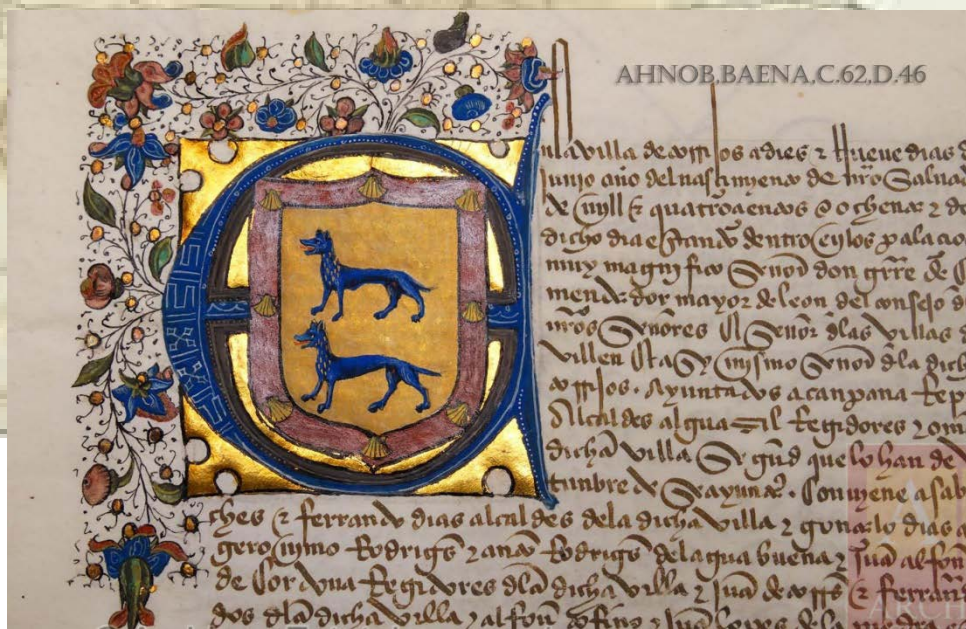 AHNOB,BAENA,C.62,D.46
Enla villa de torrijos a dies & Nueve dias d
Junio año del nasçimiento de nro Salvad
de mill & quatroçientos & ochenta & do
dicho dia estando dentro en los palacio
muy magnifico Señor don gtrre de C
mendador mayor de leon del consejo d
nros Señores & Señor dlas villas d
villen Sy mismo Señor dla dich
torrijos. Ayuntados a canpana Rep
Alcaldes alguazil Regidores & om
dicha villa Segund que lo han de
tunbre de Se ayuntar. Conviene a sab
ches & ferrando dias alcaldes dela dicha villa & gonçalo dias a
gero Rodrigs & anton Rodrigs del agua buena & Juan alfon
de Cordova Regidores dla dicha villa & Juan de & ferran
dos dla dicha villa & alfon & Juan lopes dela piedra
ARCH